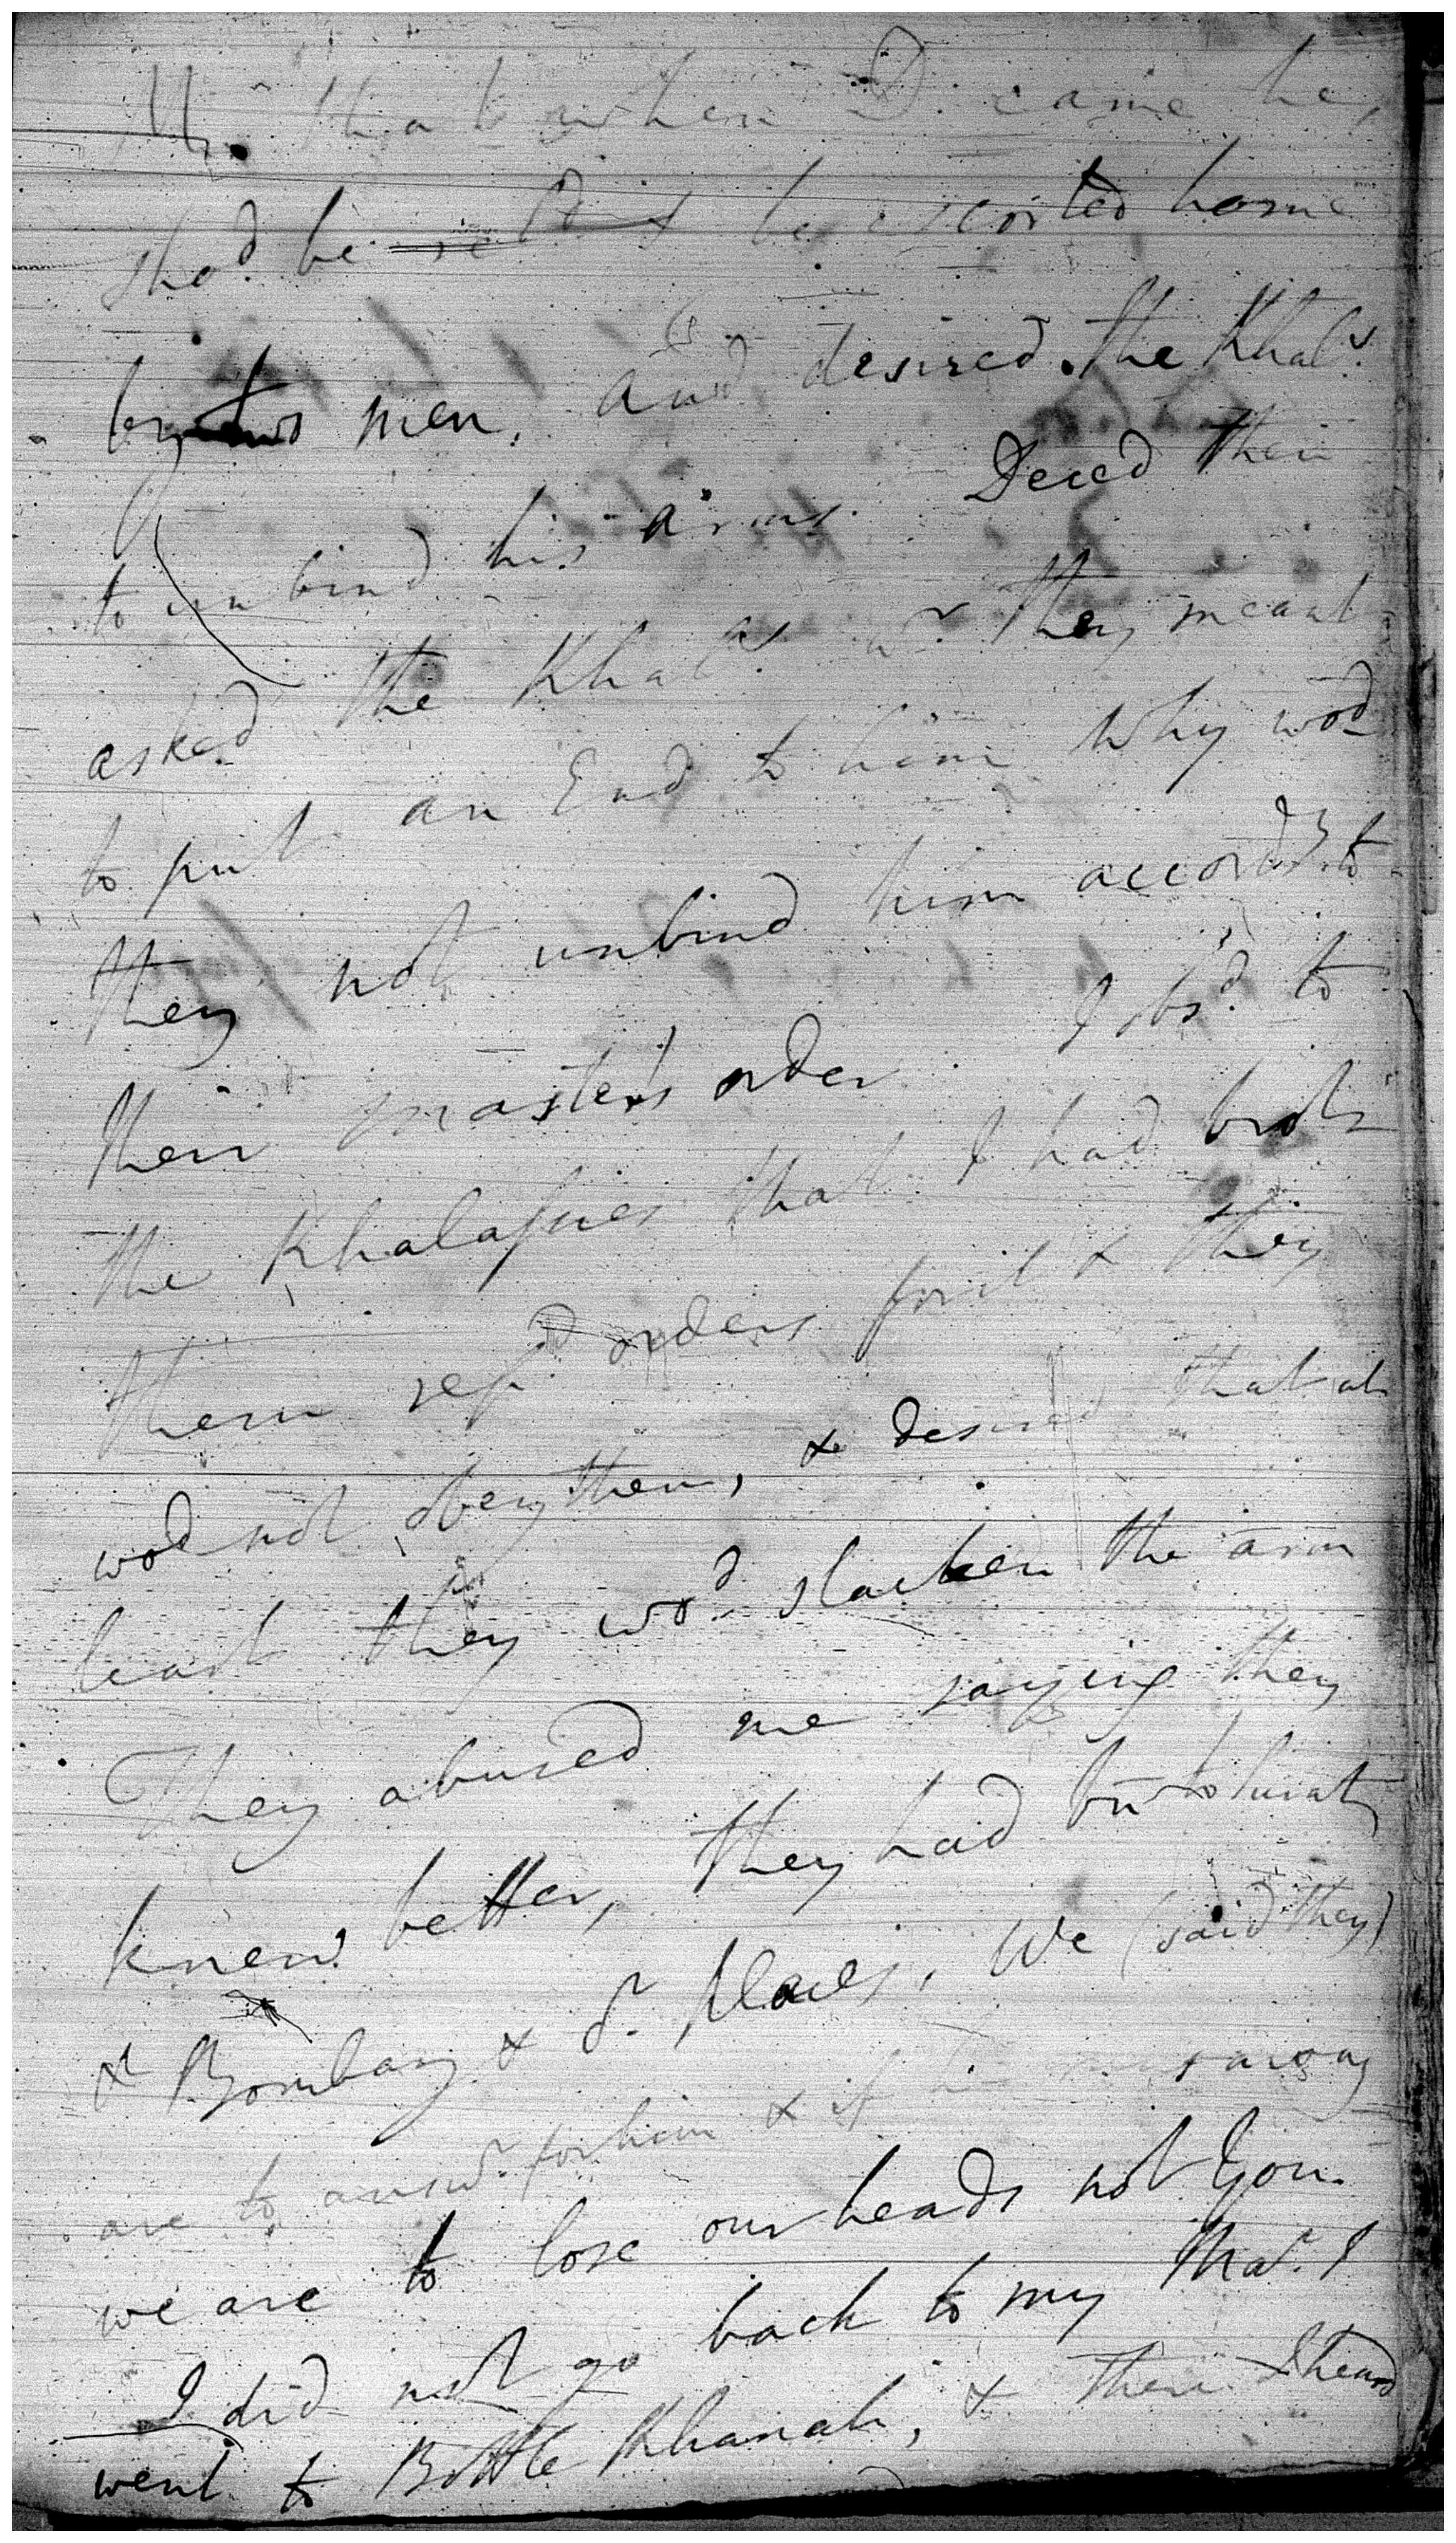 that when D. came he
shod. be escorted home
by two men, and desired the Khals.
to unbind his arms. Deced then
asked the Khals. wr. they meant
to put an End to him why wod
they not unbind him accordg. to
their master's order I obsd. to
the Khalassies that I had brot.
them repd. orders for it & they
wod not obey them, & desired that at
least they wod. slacken the arm
They abused me saying they
knew better, they had bn to Surat
& Bombay & dr. places, We (said they)
are to answr. for him & if he runs away
we are to lose our heads not you.
I did not go back to my Mar. I
went to Bottle Khanah, & there I heard